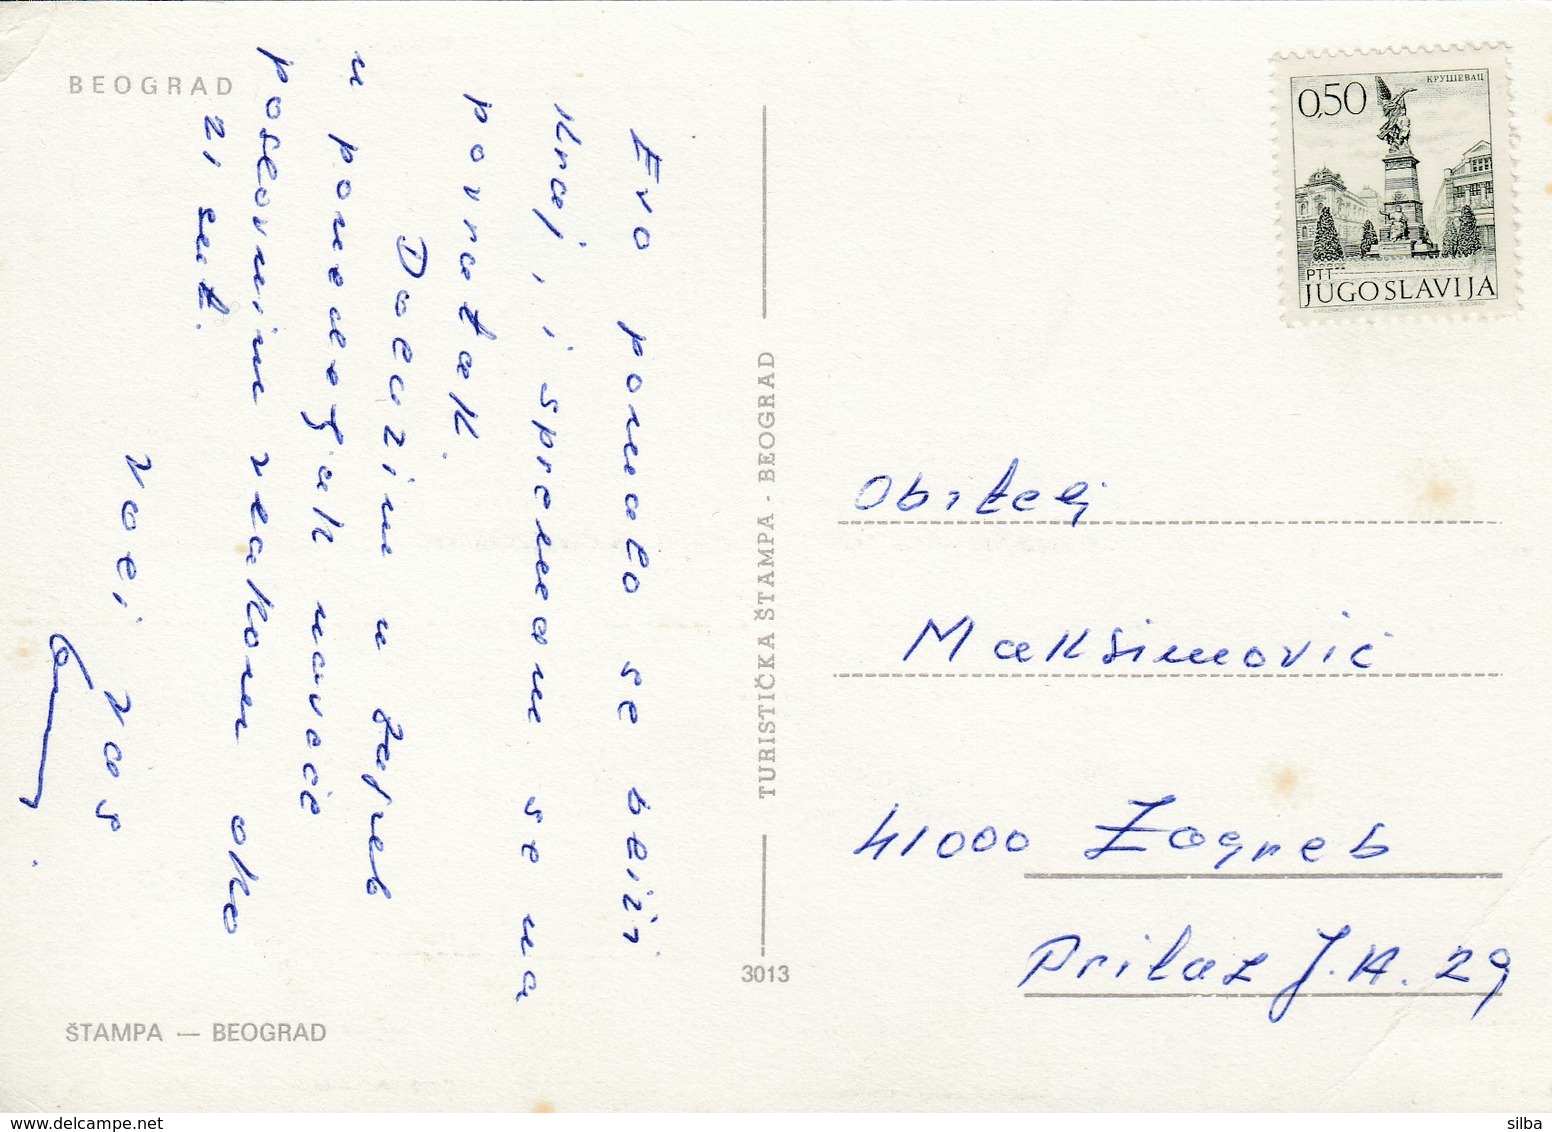 BEOGRAD
Evo pomalo se bliži
kraj, i spremam se na
povratak.
Dolazim u Zagreb
u ponedeljak naveče
poslovnim vlakom oko
21 sat.
voli vas
TURISTIČKA ŠTAMPA - BEOGRAD
3013
ŠTAMPA — BEOGRAD
КРУШЕВАЦ
0,50
PTT
JUGOSLAVIJA
Obitelj
Maksimović
41000 Zagreb
Prilaz J.A. 29
delcampe.net
silba